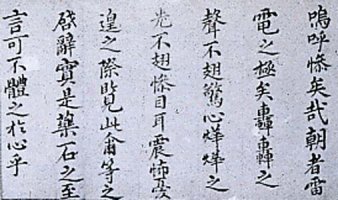 嗚呼慘矣哉朝者雷
電之極矣轟轟之
聲不翅驚心燁燁之
光不翅慘目耳震怖蒼
遑之際覽此甫等之
啟辭實是藥石之至
言可不體之於心乎